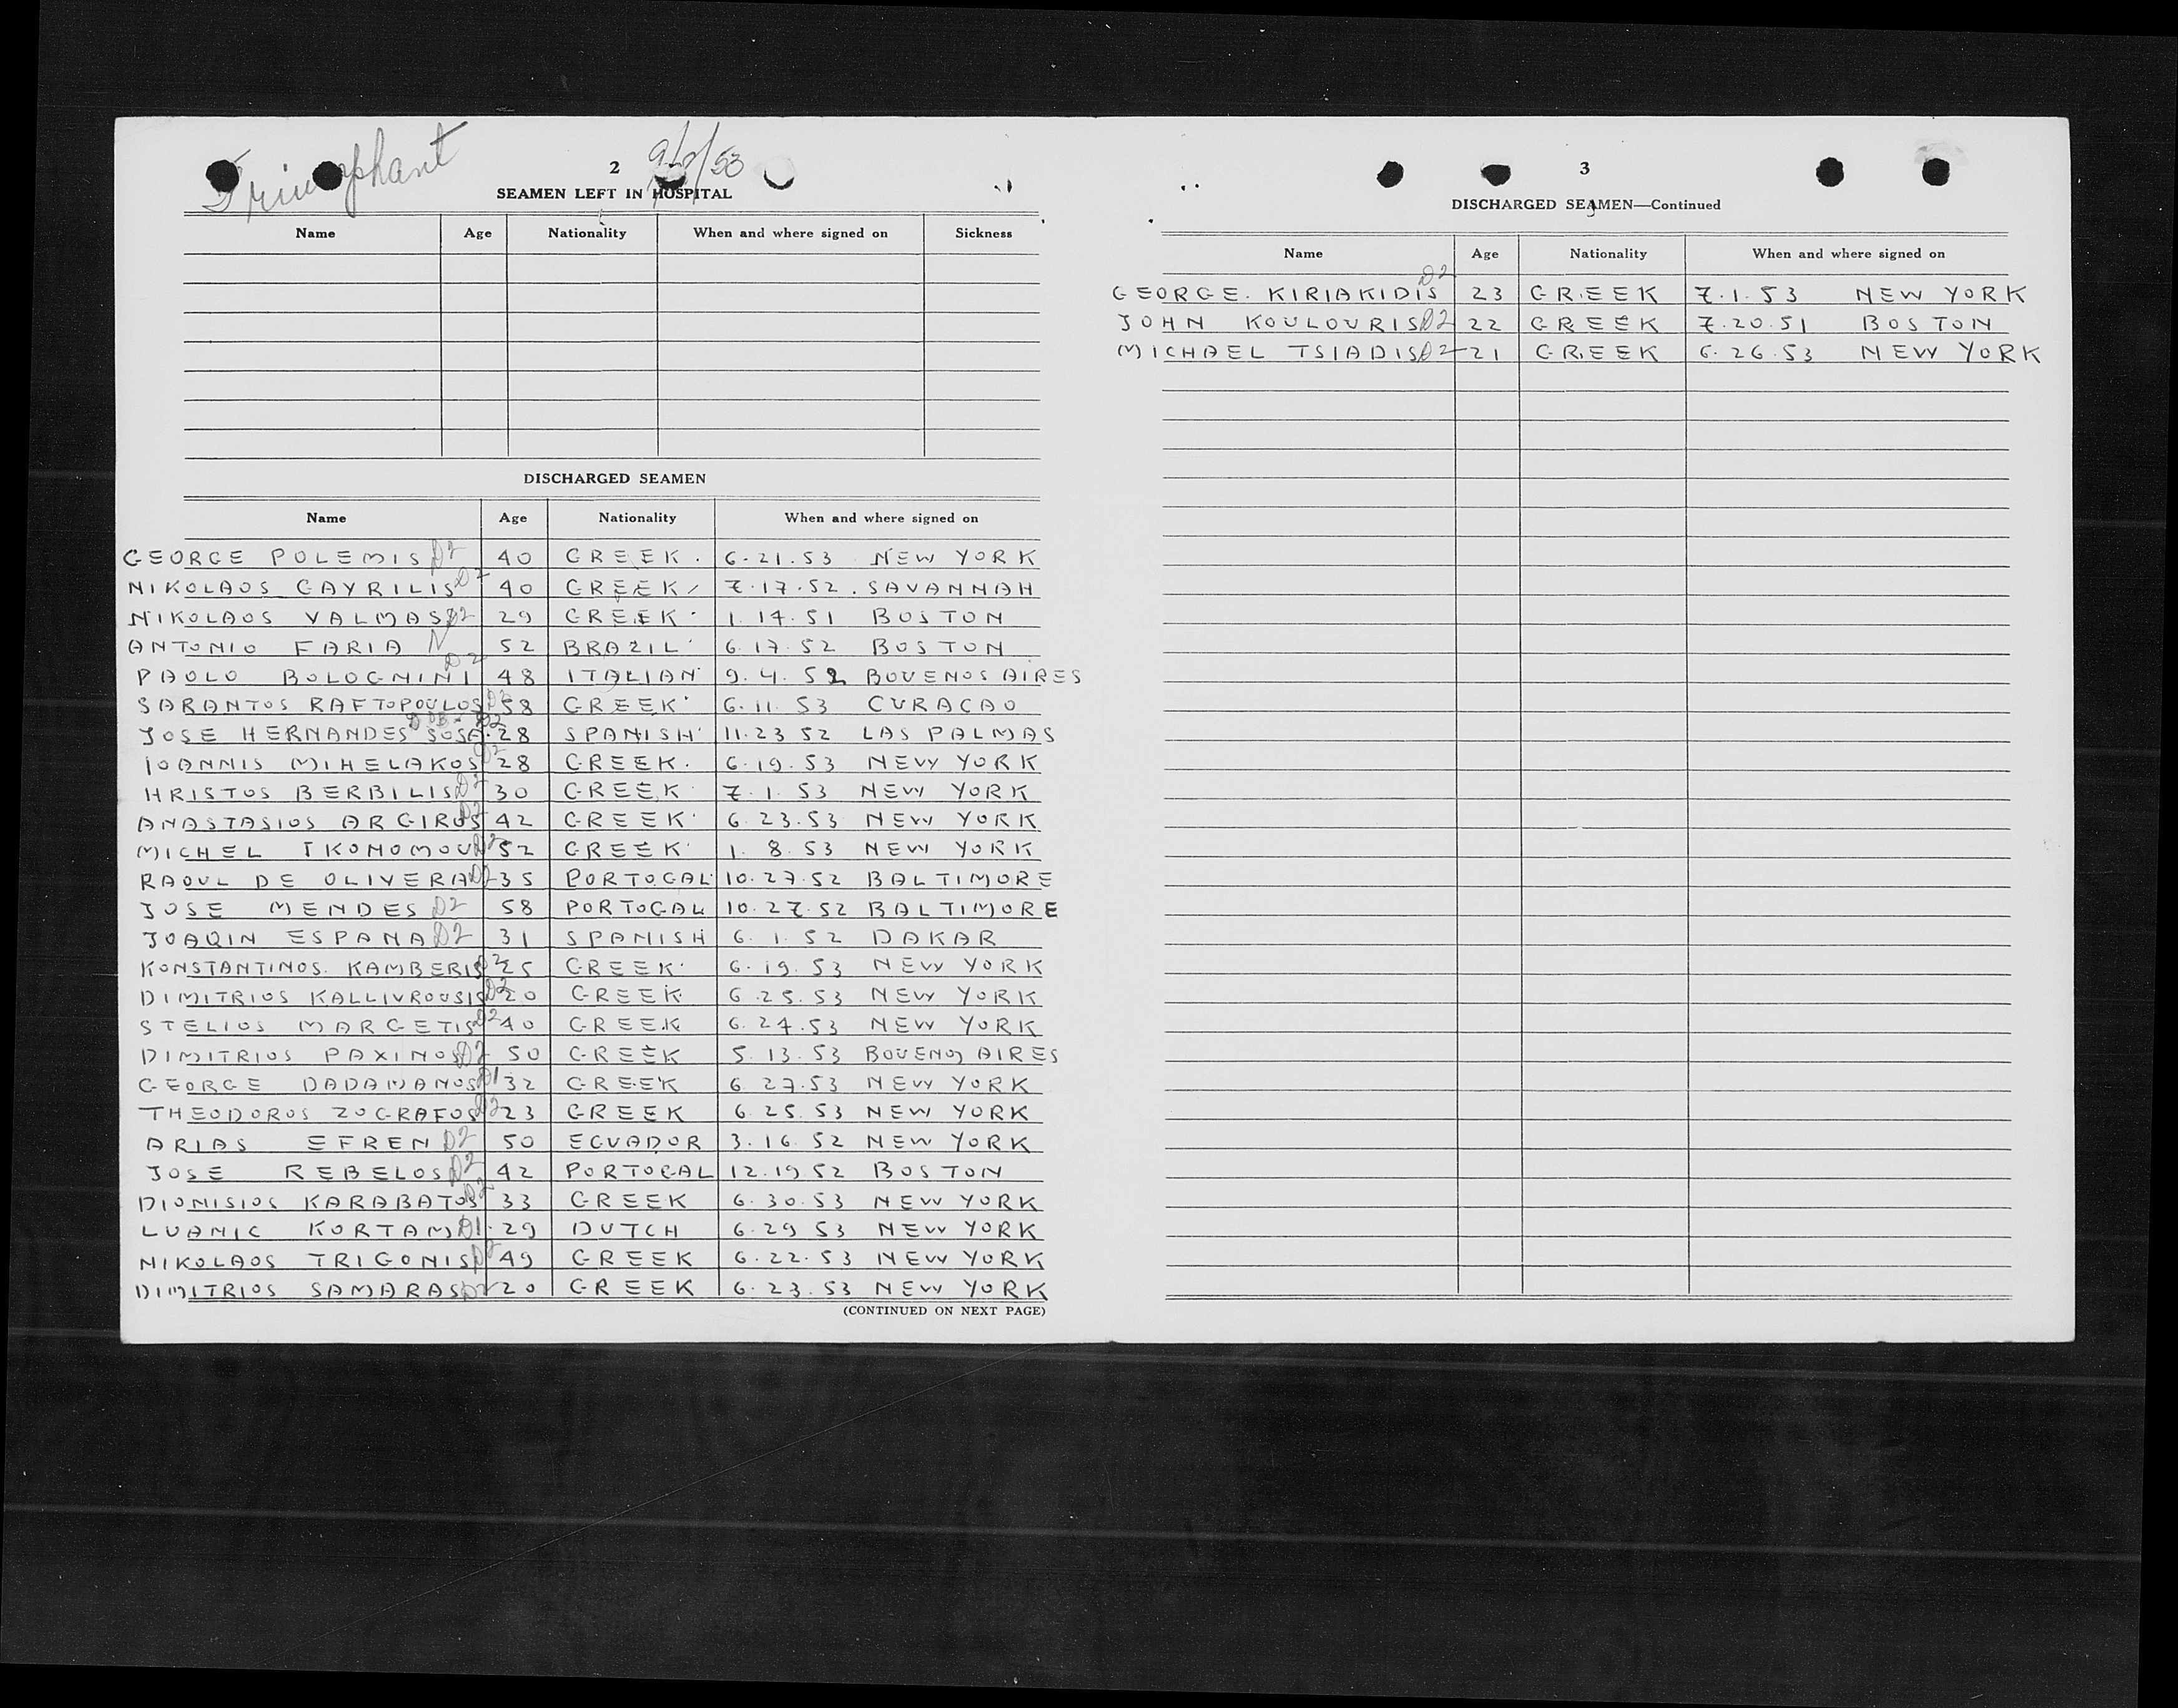 Triumphant
2
9/2/53
SEAMEN LEFT IN HOSPITAL
Name Age Nationality When and where signed on Sickness
DISCHARGED SEAMEN
Name Age Nationality When and where signed on
GEORGE POLEMIS D2 40 GREEK. 6-21.53 NEW YORK
NIKOLAOS GAVRILIS D2 40 GREEK 7.17.52. SAVANNAH
NIKOLAOS VALMAS D2 29 GREEK 1.14.51 BOSTON
ANTONIO FARIA N 52 BRAZIL 6.17.52 BOSTON
PAOLO BOLOGNINI D2 48 ITALIAN 9.4.52 BOUENOS AIRES
SARANTOS RAFTOPOULOS D2 58 GREEK 6.11.53 CURACAO
JOSE HERNANDES SOSA D2 28 SPANISH 11.23 52 LAS PALMAS
IOANNIS MIHELAKOS D2 28 GREEK. 6.19.53 NEW YORK
HRISTOS BERBILIS D2 30 GREEK 7.1.53 NEW YORK
ANASTASIOS ARGIROS D2 42 GREEK 6.23.53 NEW YORK
MICHEL IKONOMOU D2 52 GREEK 1.8.53 NEW YORK
RAOUL DE OLIVERA D2 35 PORTOGAL 10.27.52 BALTIMORE
JOSE MENDES D2 58 PORTOGAL 10.27.52 BALTIMORE
JOAQIN ESPANA D2 31 SPANISH 6.1.52 DAKAR
KONSTANTINOS. KAMBERIS D2 25 GREEK 6.19.53 NEW YORK
DIMITRIOS KALLIVROUSIS D2 20 GREEK 6.25.53 NEW YORK
STELIOS MARGETIS D2 40 GREEK 6.24.53 NEW YORK
DIMITRIOS PAXINOS D2 50 GREEK 5.13.53 BOUENOS AIRES
GEORGE DADAMANOS D1 32 GREEK 6.27.53 NEW YORK
THEODOROS ZOGRAFOS D2 23 GREEK 6.25.53 NEW YORK
ARIAS EFREN D2 50 ECUADOR 3.16.52 NEW YORK
JOSE REBELOS D2 42 PORTOGAL 12.19.52 BOSTON
DIONISIOS KARABATOS D2 33 GREEK 6.30.53 NEW YORK
LUANIC KORTAM D1 29 DUTCH 6.29 53 NEW YORK
NIKOLAOS TRIGONIS D2 49 GREEK 6.22.53 NEW YORK
DIMITRIOS SAMARAS D2 20 GREEK 6.23.53 NEW YORK
(CONTINUED ON NEXT PAGE)
3
DISCHARGED SEAMEN—Continued
Name Age Nationality When and where signed on
GEORGE. KIRIAKIDIS D2 23 GREEK 7.1.53 NEW YORK
JOHN KOULOURIS D2 22 GREEK 7.20.51 BOSTON
MICHAEL TSIADIS D2 21 GREEK 6.26.53 NEW YORK